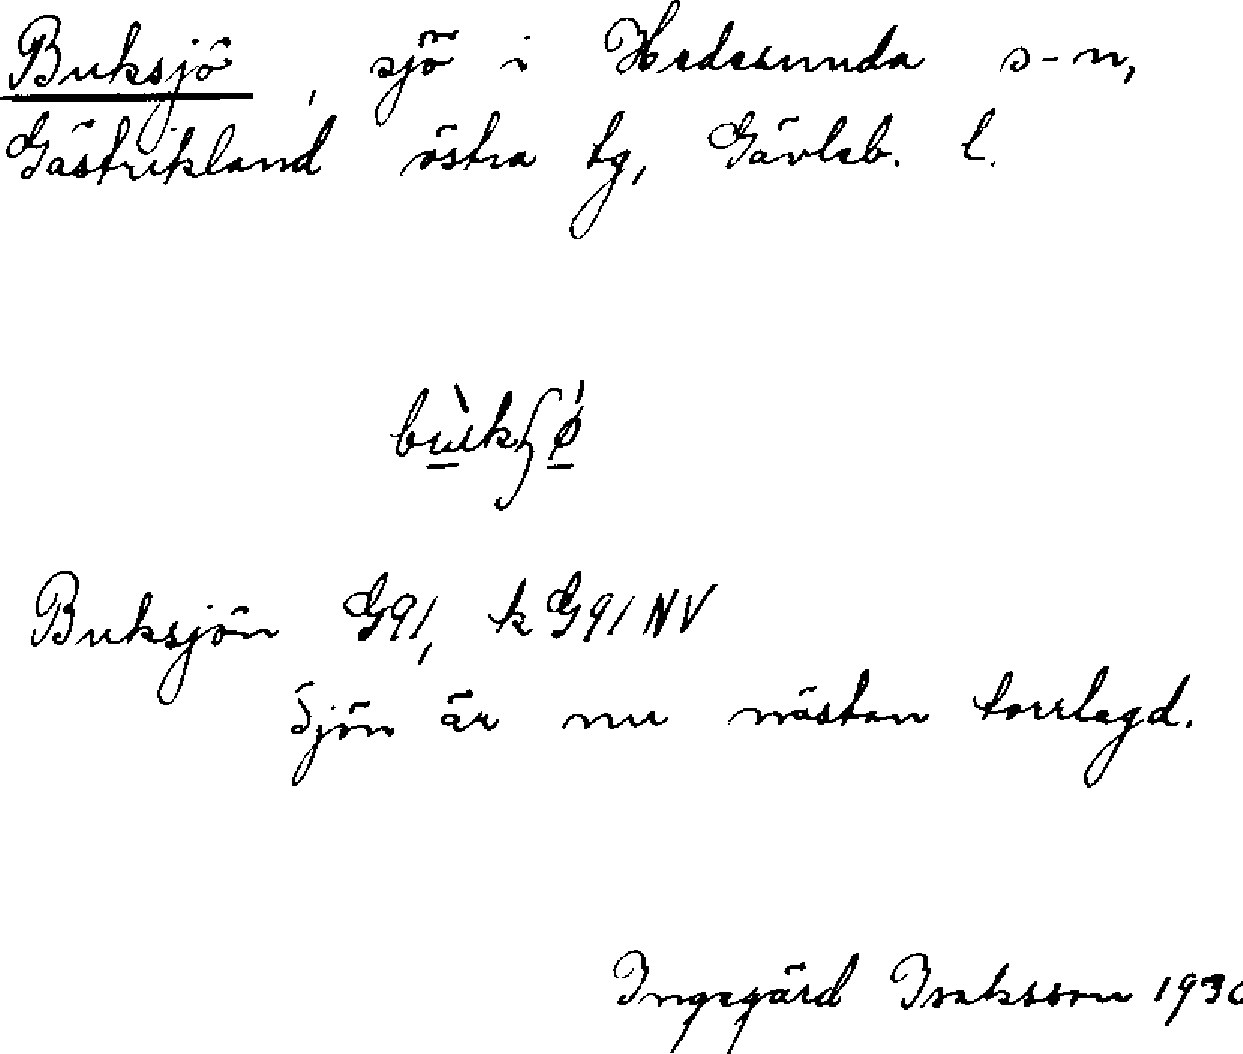 Buksjö, sjö i Hedesunda s-n,
Gästrikland östra tg, Gävleb. l.
Buksjön G91, k G91 NV
Sjön är nu nästan torrlagd.
Ingegärd Isaksson 193